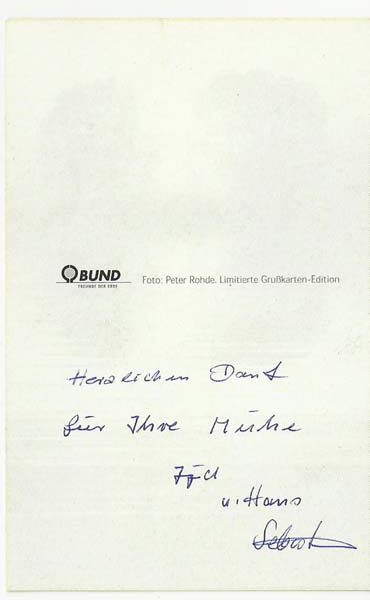 BUND
FREUNDE DER ERDE
Foto: Peter Rohde. Limitierte Grußkarten-Edition
Herzlichen Dank
für Ihre Mühe
u. Hans